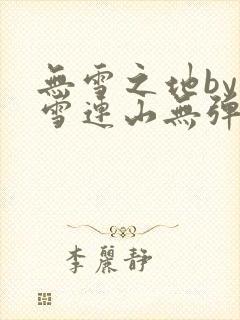 無雪之地by
雪連山無彈
李麗靜